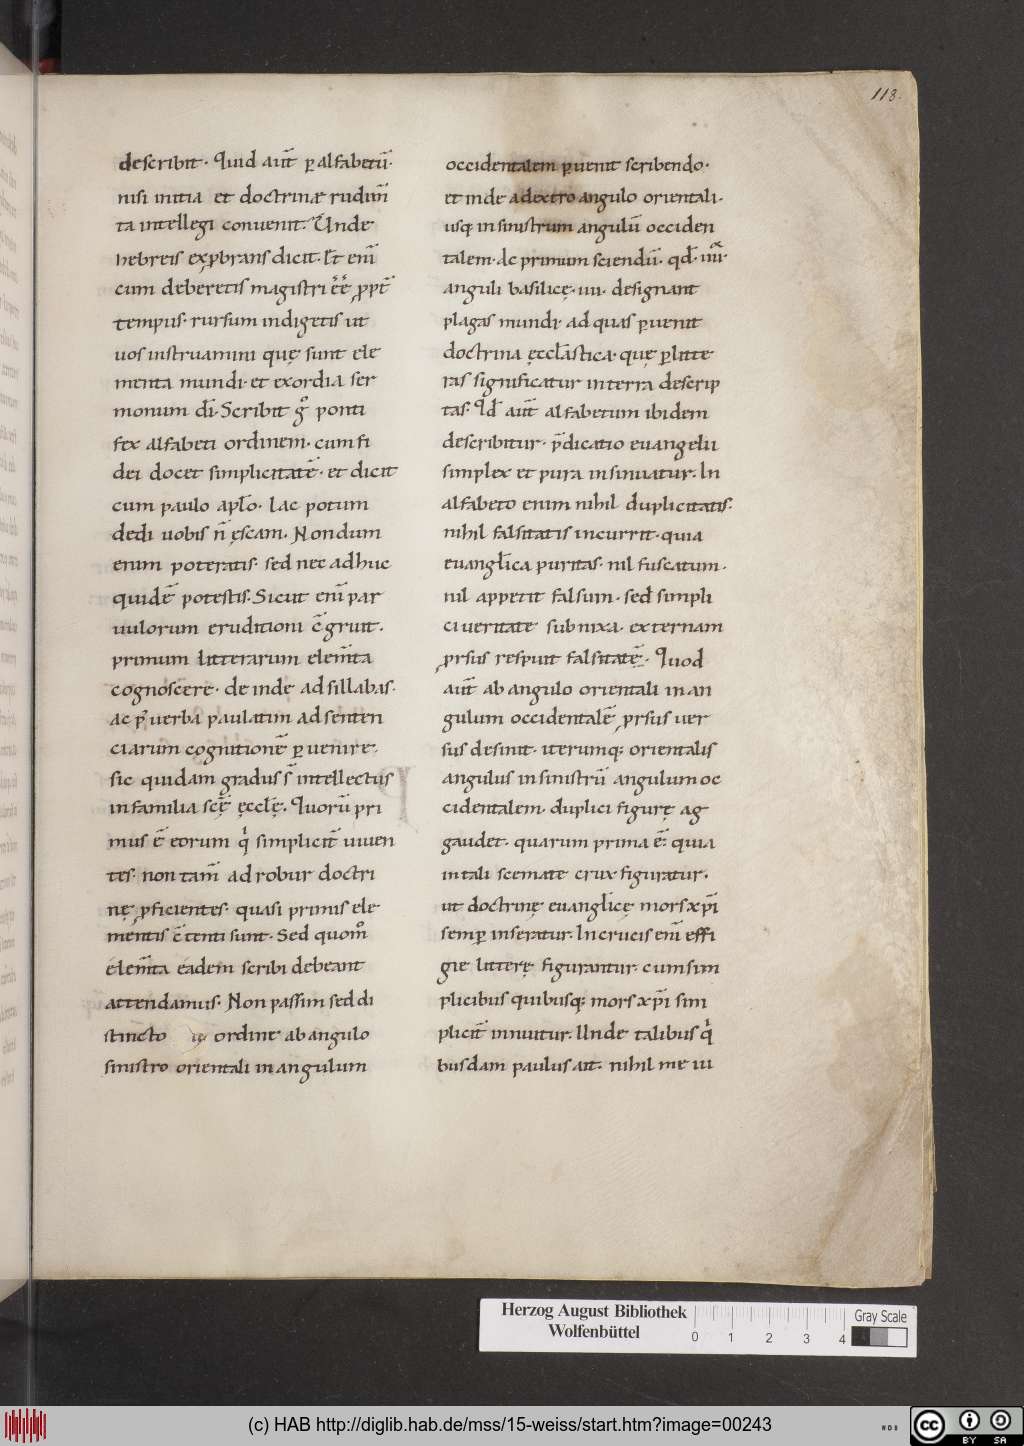 118.
describit. Quid aut̄ ꝑ alfabetū.
nisi initia et doctrinæ rudim̄
ta intellegi conuenit. Unde
hebreis exꝓbrans dicit. Et eni̅
cum deberetis magistri ee̅ ꝓpt̄
tempus. rursum indigetis ut
uos instruamini quę sunt ele
menta mundi. et exordia ser
monum dı̅. Scribit gͦ ponti
fex alfabeti ordinem. cum fi
dei docet simplicitatē. et dicit
cum paulo apło. Lac potum
dedi uobis n̄ ęscam. Nondum
enim poteratis. sed nec adhuc
quidē potestis. Sicut eni̅ par
uulorum eruditioni c̄gruit.
primum litterarum elem̄ta
cognoscere. deinde ad sillabas.
ac p̄ uerba paulatim ad senten
ciarum cognitionē ꝑuenire.
sic quidam gradus s̄ intellectus
in familia scę̄ ęccłę. Quorū pri
mus ē eorum qͥ simplicit̄ uiuen
tes. non tam̄ ad robur doctri
nę ꝓficientes. quasi primis ele
mentis c̄tenti sunt. Sed quom̊
elem̄ta eadem scribi debeant
attendamus. Non passim sed di
stincto ordine ab angulo
sinistro orientali in angulum
occidentalem ꝑuenit scribendo.
et inde a dextro angulo orientali.
usq; in sinistrum angulū occiden
talem. Ac primum sciendū. qd̄ iiiiͬ
anguli basilicę. iiii. designant
plagas mundi. ad quas ꝑuenit
doctrina ęccłastica. quę ꝑ litte
ras significatur in terra descrip
tas. Qd̄ aut̄ alfabetum ibidem
describitur. p̄dicatio euangelii
simplex et pura insinuatur. In
alfabeto enim nihil duplicitatis.
nihil falsitatis incurrit. quia
euanglica puritas. nil fuscatum.
nil appetit falsum. sed simpli
ci ueritate subnixa. externam
ꝓrsus respuit falsitatē. Quod
aut̄ ab angulo orientali in an
gulum occidentalē ꝓrsus uer
sus desinit. iterumq; orientalis
angulus in sinistrū angulum oc
cidentalem. duplici figurę ag
gaudet. quarum prima ē. quia
in tali scemate crux figuratur.
ut doctrinę euanglicę mors xp̄i
semꝑ inseratur. In crucis eni̅ effi
gie litterę figurantur. cum sim
plicibus quibusq; mors xp̄i sim
plicit̄ innuitur. Unde talibus qͥ
busdam paulus ait. nihil me iu
Herzog August Bibliothek
Wolfenbüttel
0 1 2 3 4
Gray Scale
(c) HAB http://diglib.hab.de/mss/15-weiss/start.htm?image=00243
cc BY SA